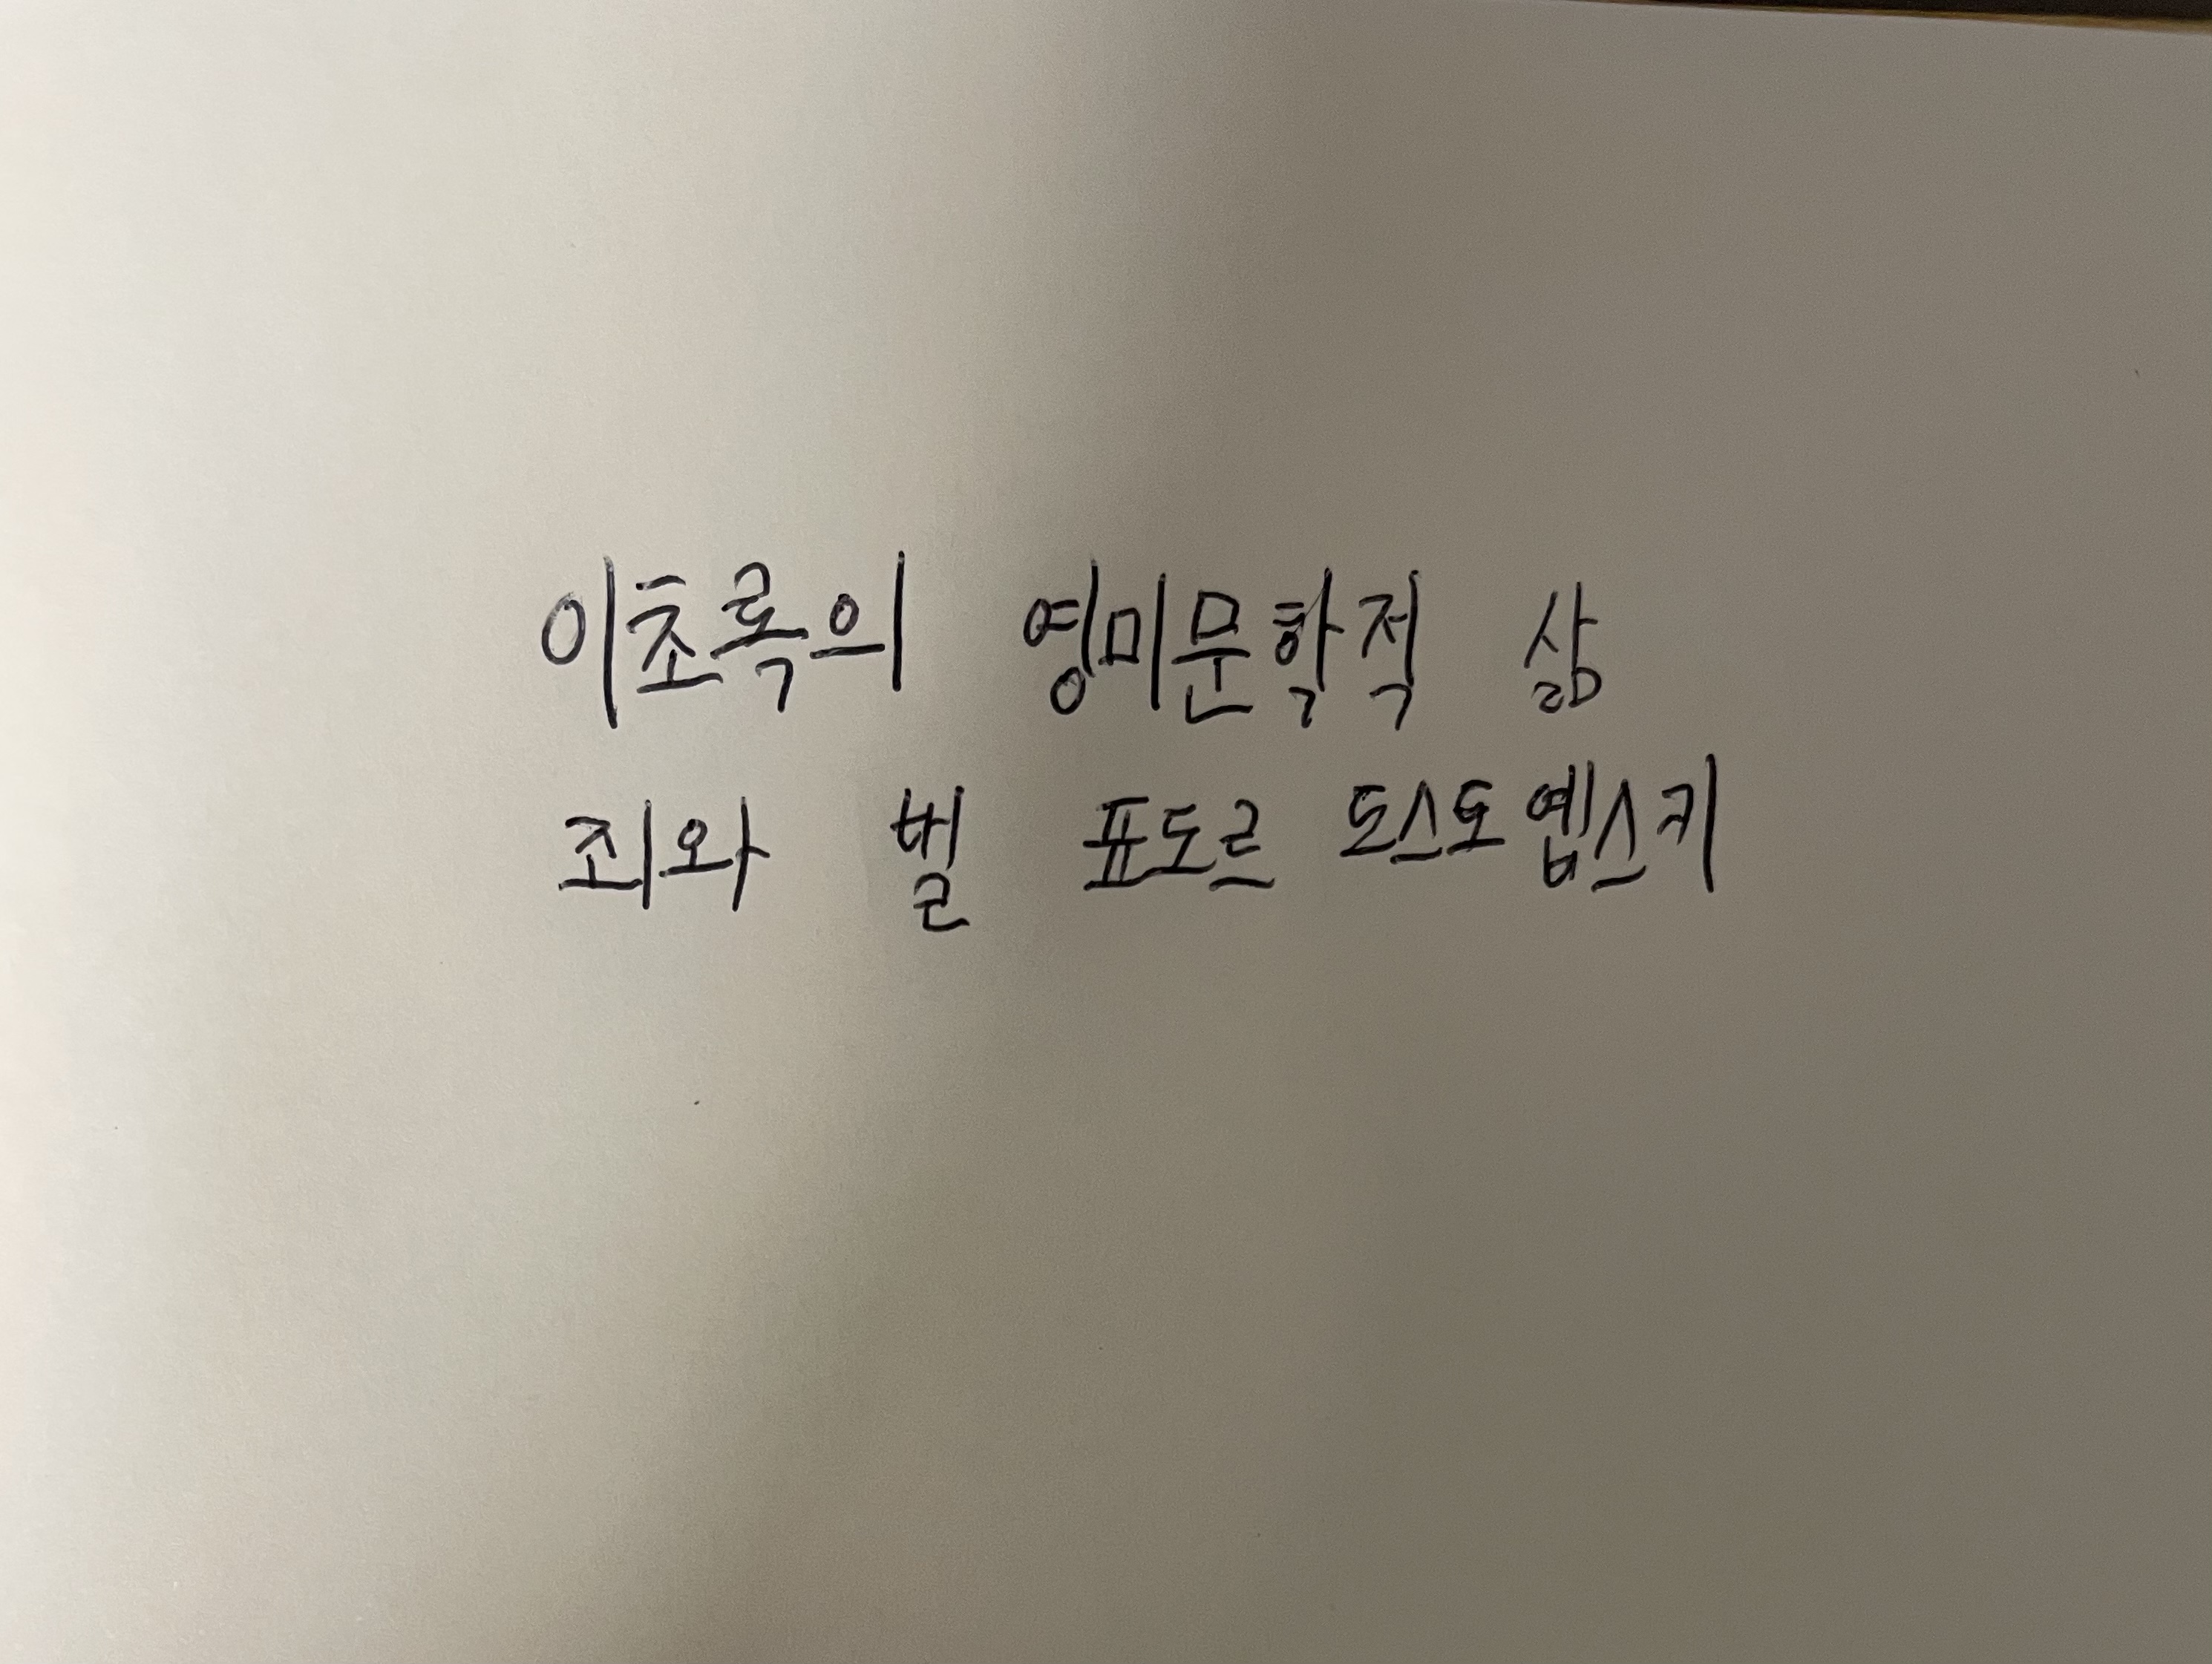 이초록의 영미문학적 삶
죄와 벌 표도르 도스도옙스키